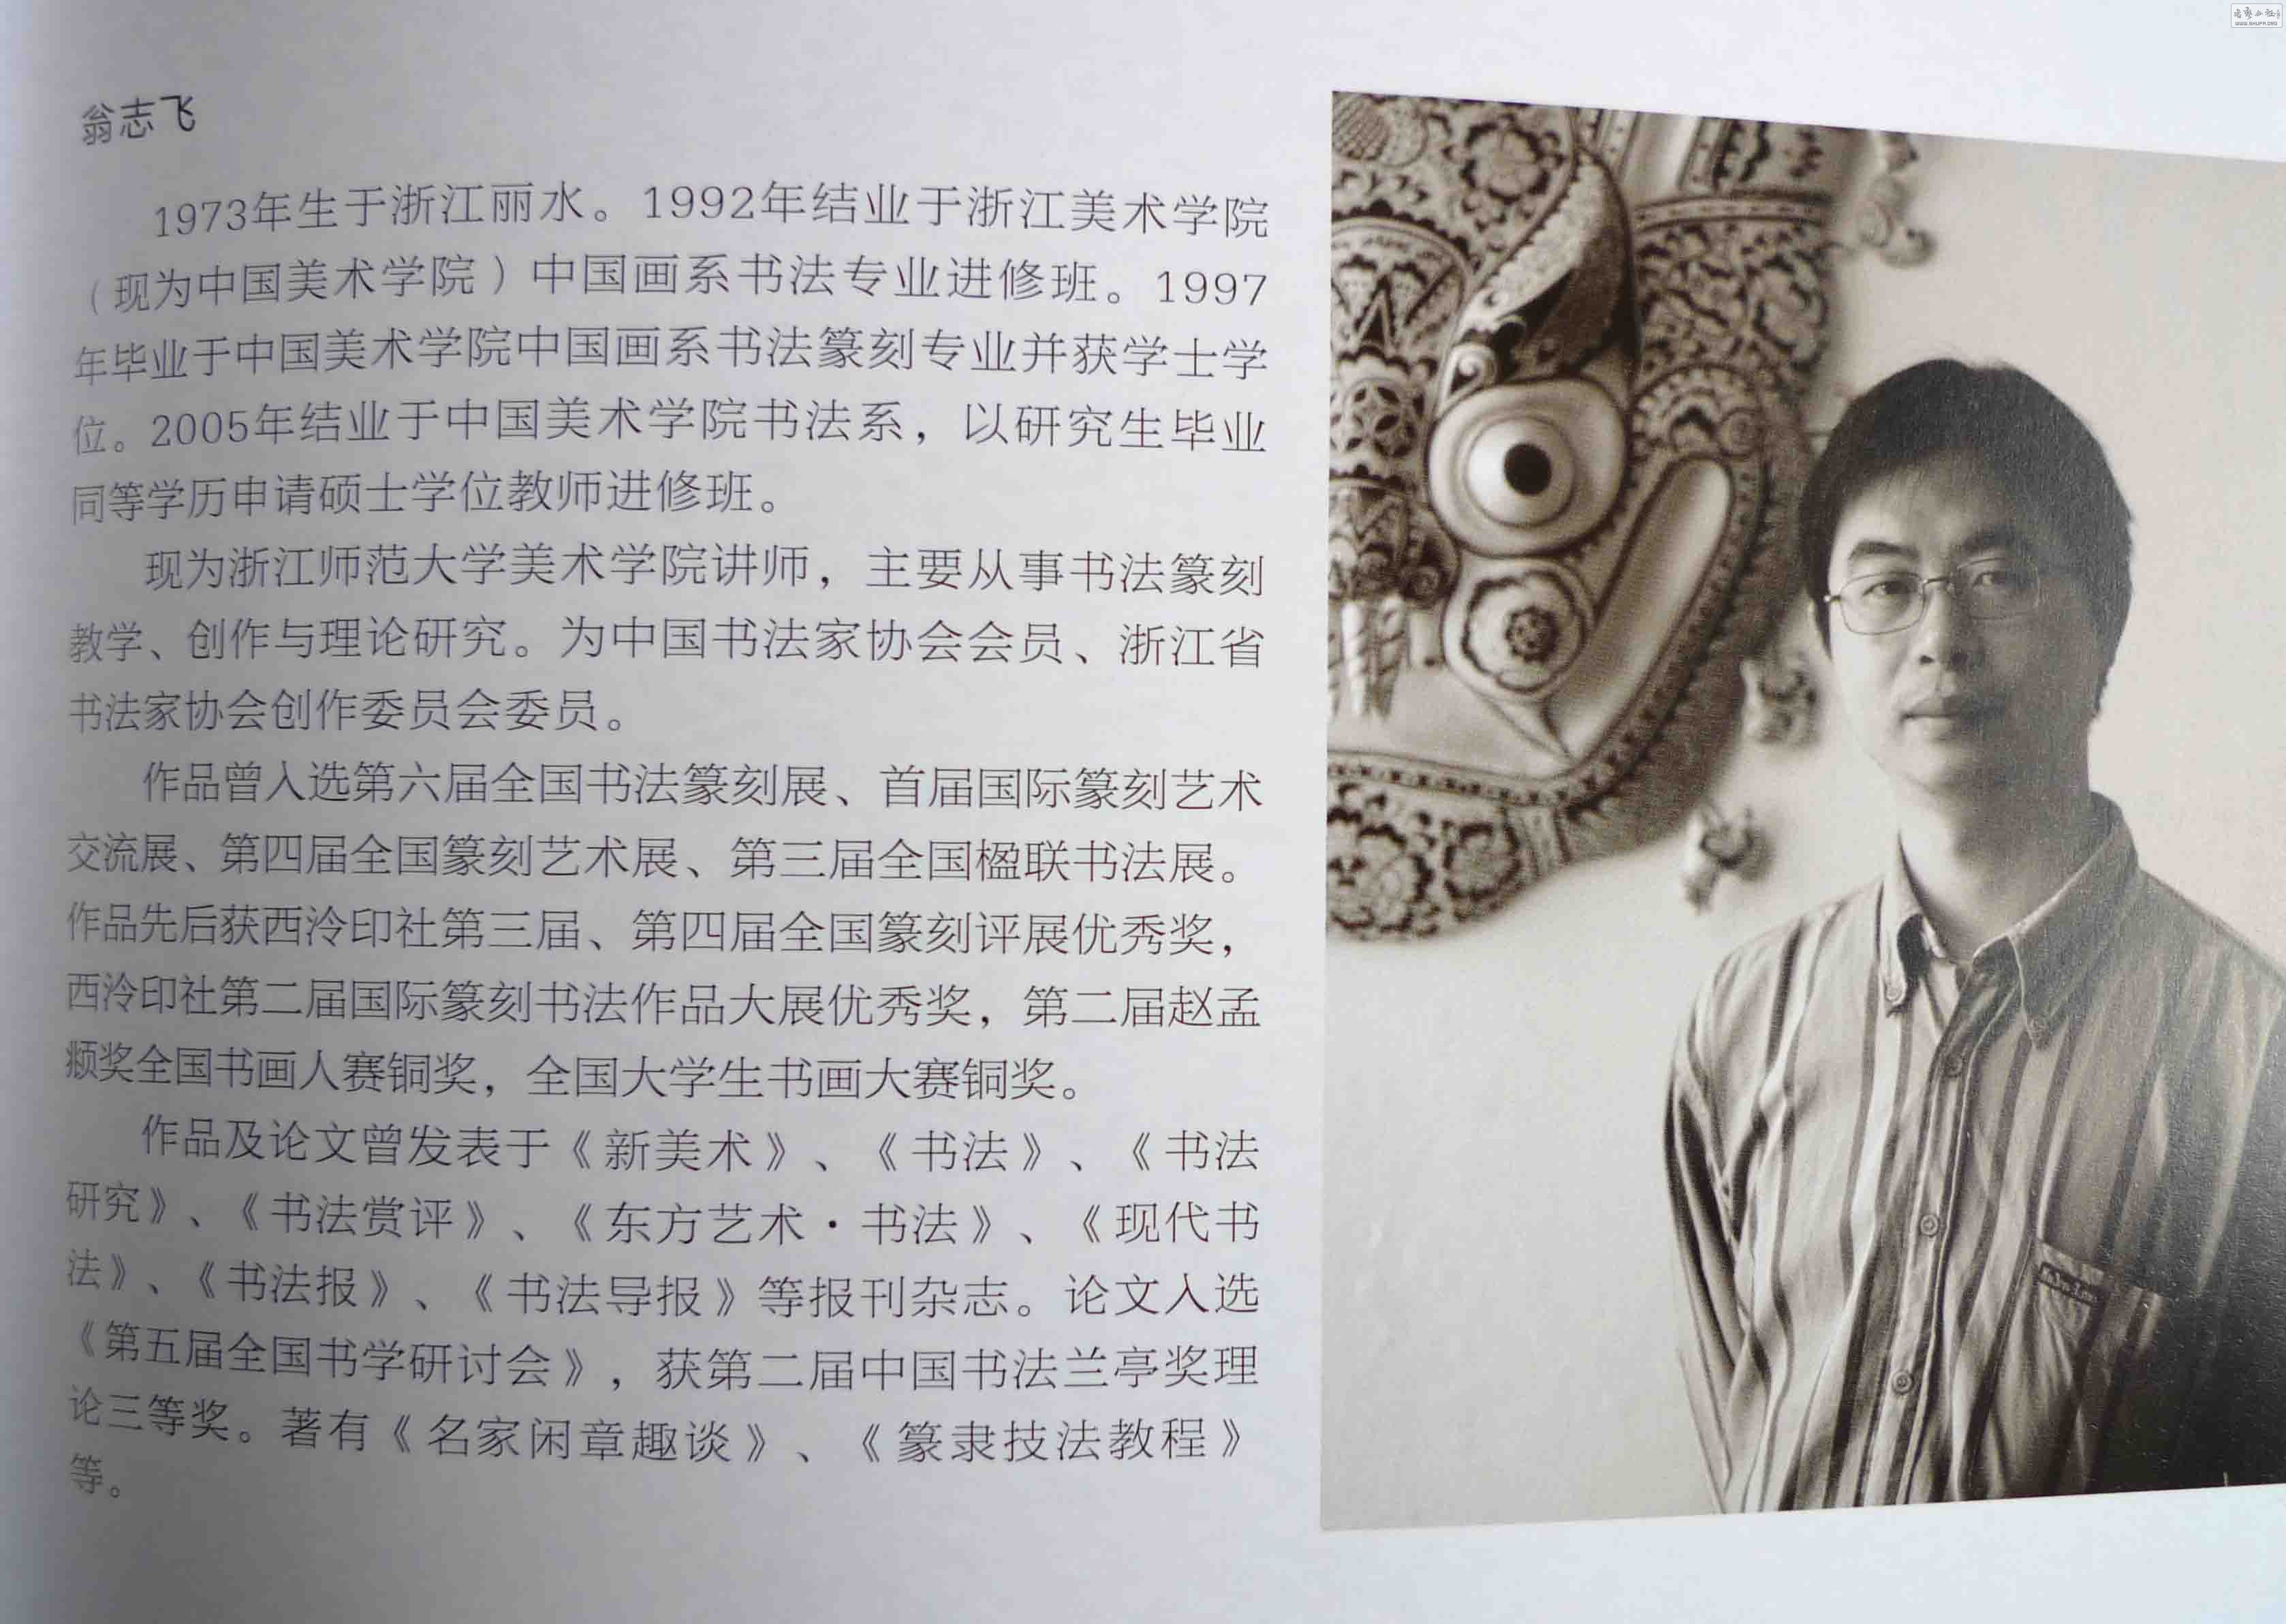 翁志飞
1973年生于浙江丽水。1992年结业于浙江美术学院
（现为中国美术学院）中国画系书法专业进修班。1997
年毕业于中国美术学院中国画系书法篆刻专业并获学士学
位。2005年结业于中国美术学院书法系，以研究生毕业
同等学历申请硕士学位教师进修班。
现为浙江师范大学美术学院讲师，主要从事书法篆刻
教学、创作与理论研究。为中国书法家协会会员、浙江省
书法家协会创作委员会委员。
作品曾入选第六届全国书法篆刻展、首届国际篆刻艺术
交流展、第四届全国篆刻艺术展、第三届全国楹联书法展。
作品先后获西泠印社第三届、第四届全国篆刻评展优秀奖，
西泠印社第二届国际篆刻书法作品大展优秀奖，第二届赵孟
頫奖全国书画人赛铜奖，全国大学生书画大赛铜奖。
作品及论文曾发表于《新美术》、《书法》、《书法
研究》、《书法赏评》、《东方艺术·书法》、《现代书
法》、《书法报》、《书法导报》等报刊杂志。论文入选
《第五届全国书学研讨会》，获第二届中国书法兰亭奖理
论三等奖。著有《名家闲章趣谈》、《篆隶技法教程》
等。
WWW.SHUFA.ORG